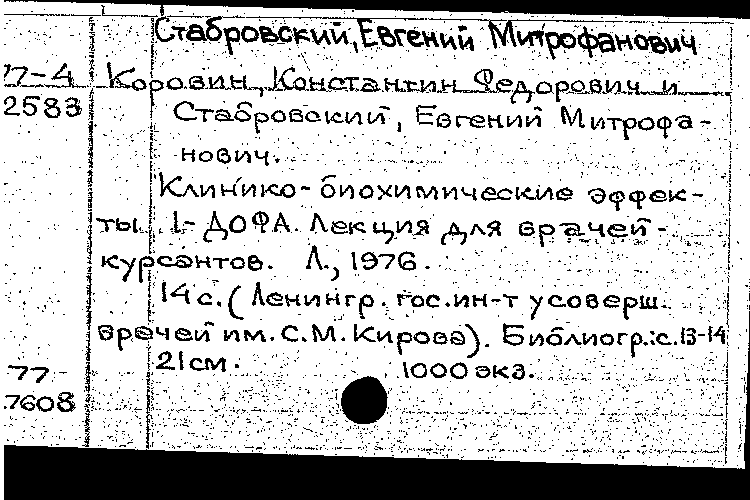 Стабровский, Евгений Митрофанович
77-4 Коровин, Константин Федорович и
2583 Стабровский, Евгений Митрофа-
нович.
Клинико-биохимические эффек-
ты L-ДОФА. Лекция для врачей-
курсантов. Л., 1976.
14 с. (Ленингр. гос. ин-т усоверш.
врачей им. С.М. Кирова). Библиогр.: с. 13-14
77 21 см. 1000 экз.
7608